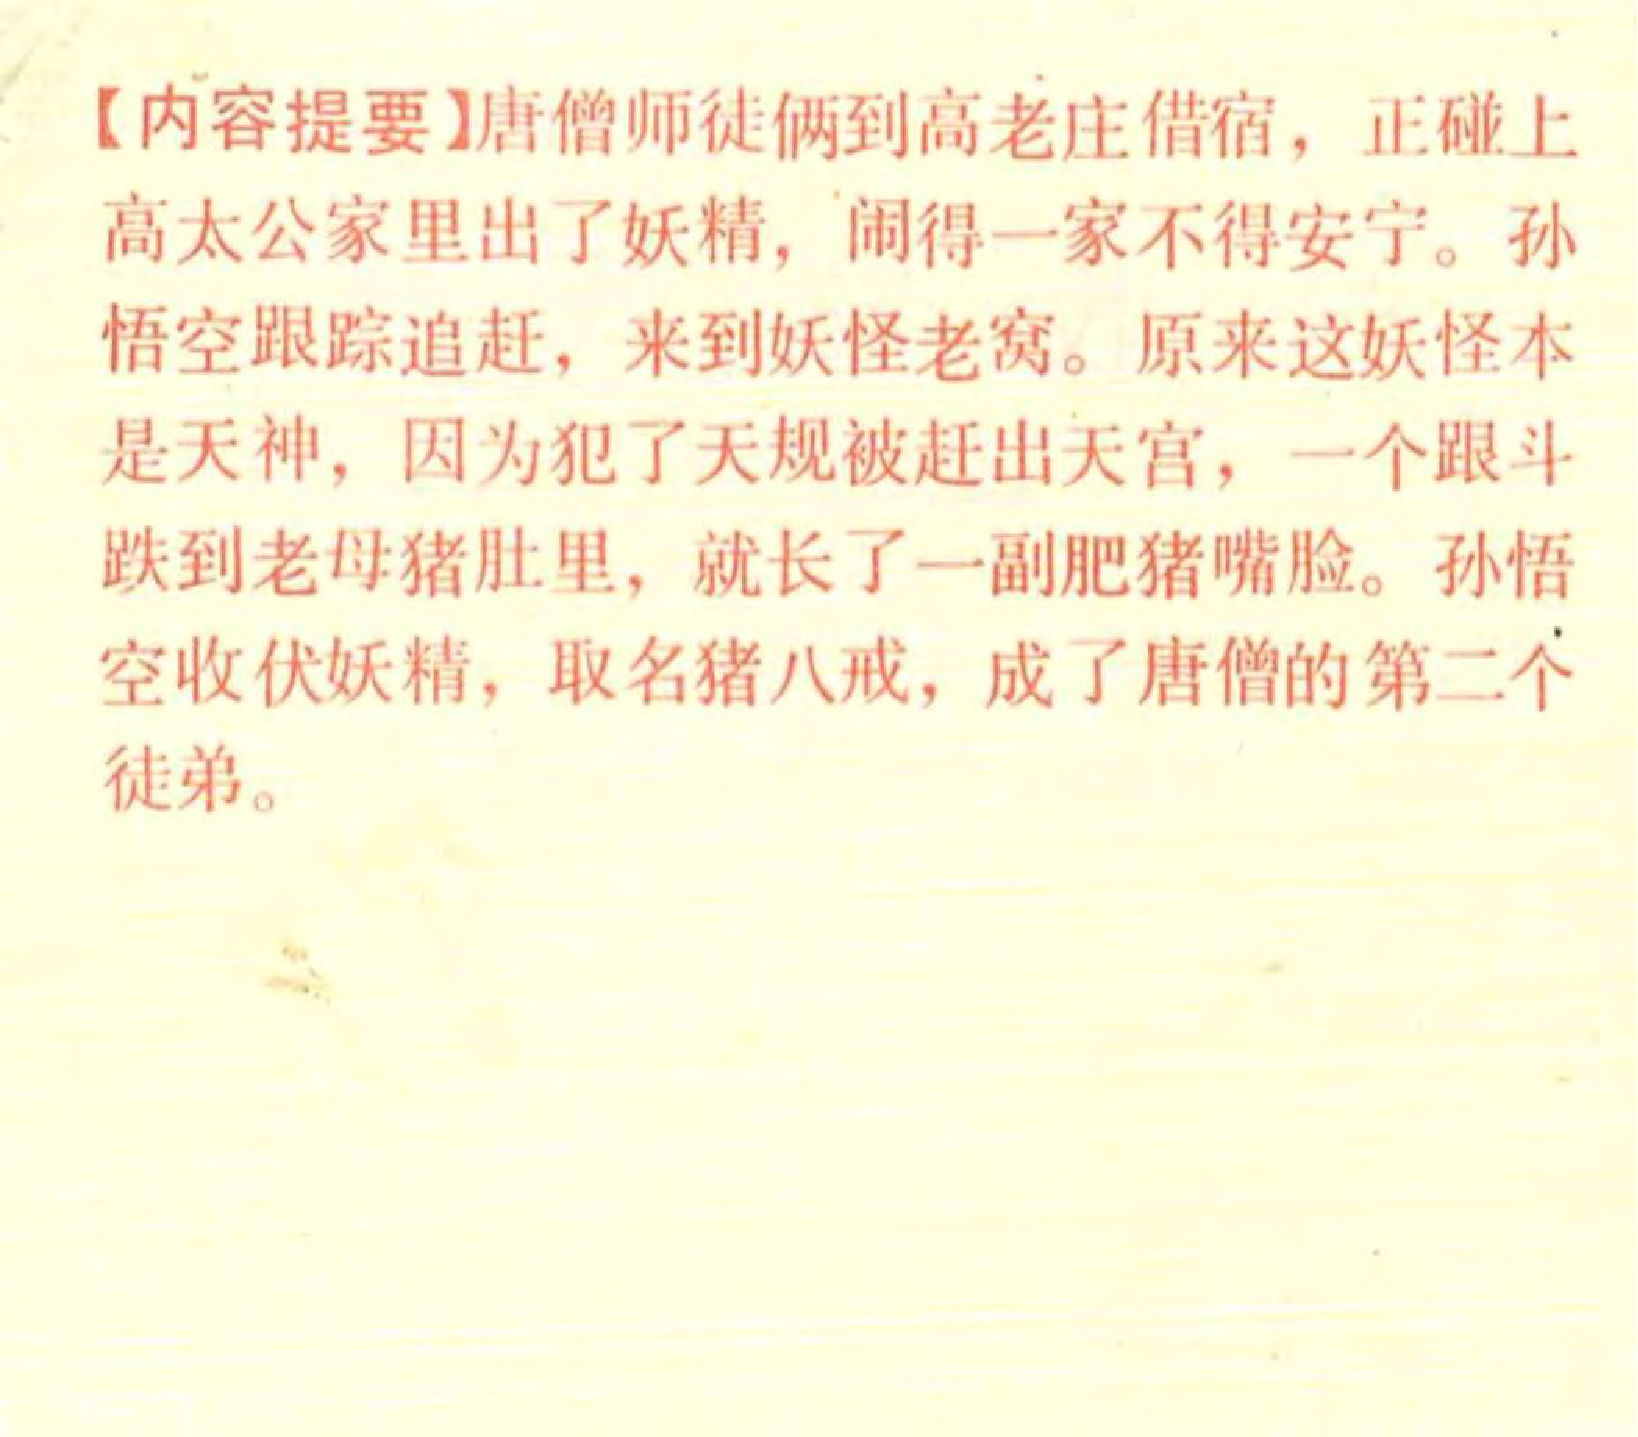 【内容提要】唐僧师徒俩到高老庄借宿，正碰上
高太公家里出了妖精，闹得一家不得安宁。孙
悟空跟踪追赶，来到妖怪老窝。原来这妖怪本
是天神，因为犯了天规被赶出天宫，一个跟斗
跌到老母猪肚里，就长了一副肥猪嘴脸。孙悟
空收伏妖精，取名猪八戒，成了唐僧的第二个
徒弟。